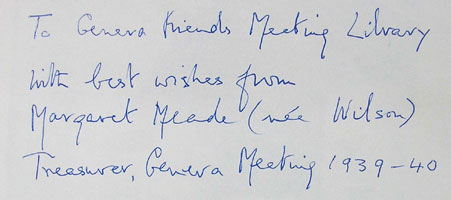 To Geneva Friends Meeting Library
with best wishes from
Margaret Meade (née Wilson)
Treasurer, Geneva Meeting 1939-40